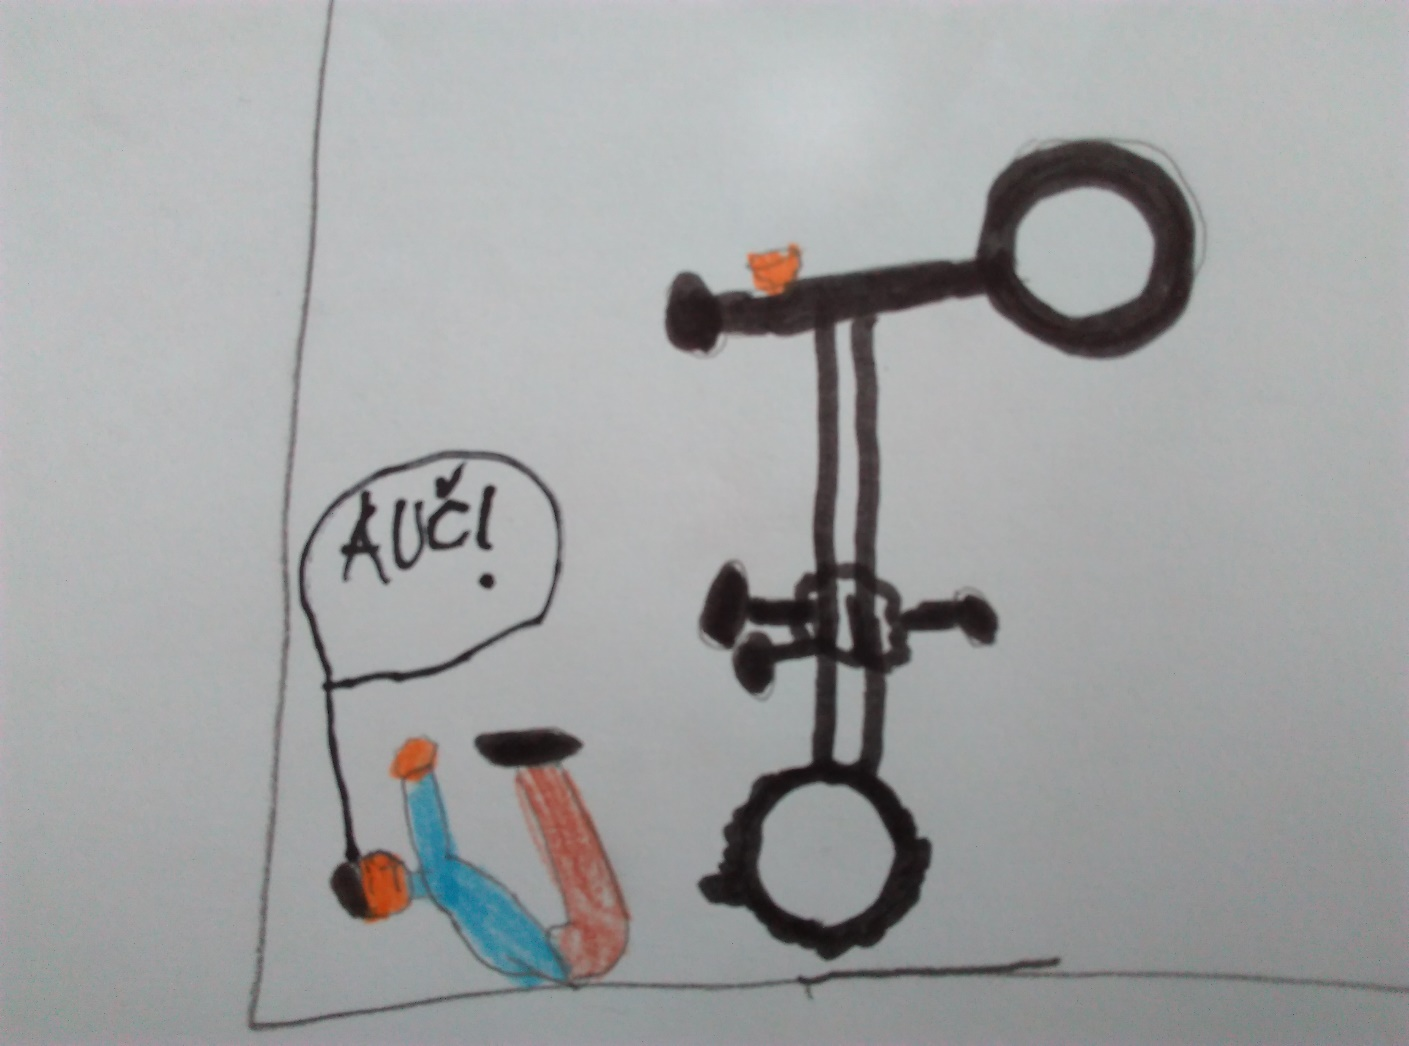 AUČ!